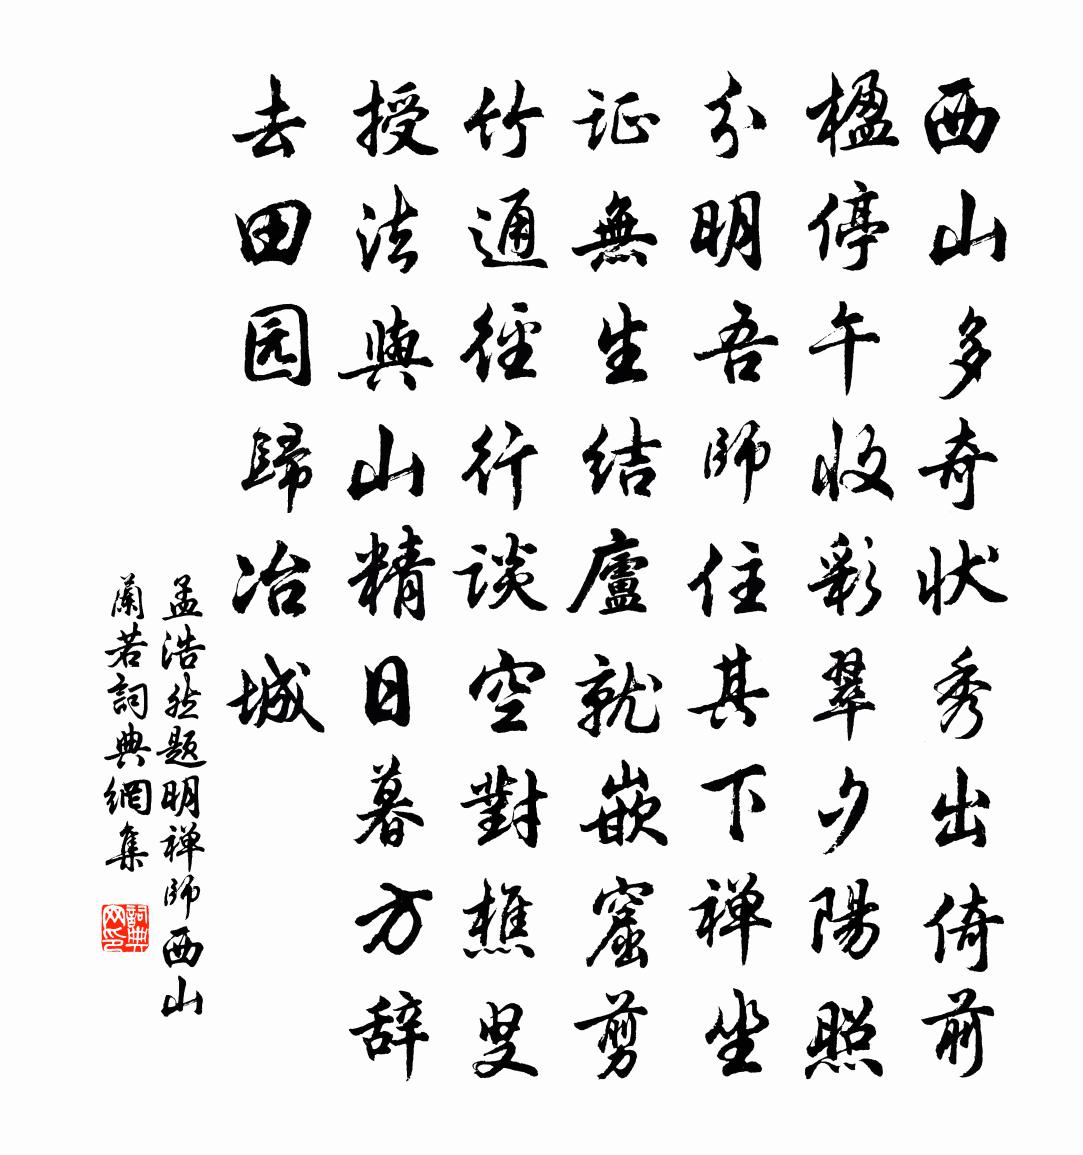 西山多奇状秀出倚前
楹停午收彩翠夕陽照
分明吾師住其下禅坐
证無生结廬就嵌窟剪
竹通徑行谈空對樵叟
授法與山精日暮方辞
去田园歸冶城
孟浩然题明禅師西山
蘭若詞典網集
詞典网印